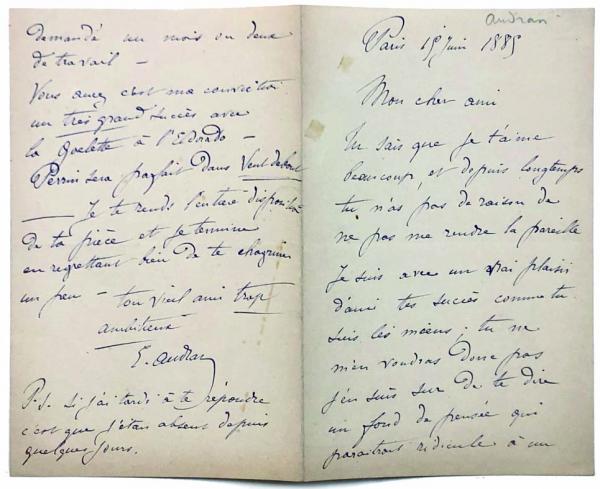 Audran
Paris 15 Juin 1885
Mon cher ami
Tu sais que je t'aime
beaucoup, et depuis longtemps
tu n'as pas de raison de
ne pas me rendre la pareille
Je suis avec un vrai plaisir
d'ami tes succès comme tu
suis les miens ; tu ne
m'en voudras donc pas
j'en suis sur de te dire
un fond de pensée qui
paraitrait ridicule à un
demandé un mois ou deux
de travail —
Vous aurez c'est ma conviction
un très grand succès avec
la Goelette à l'Eldorado —
Perrin sera parfait dans Vent debout
— Je te rends l'entière disposition
de ta pièce et je termine
en regrettant bien de te chagriner
un peu — ton vieil ami trop
ambitieux
E. Audran
P.S. si j'ai tardé à te répondre
c'est que j'étais absent depuis
quelques jours.